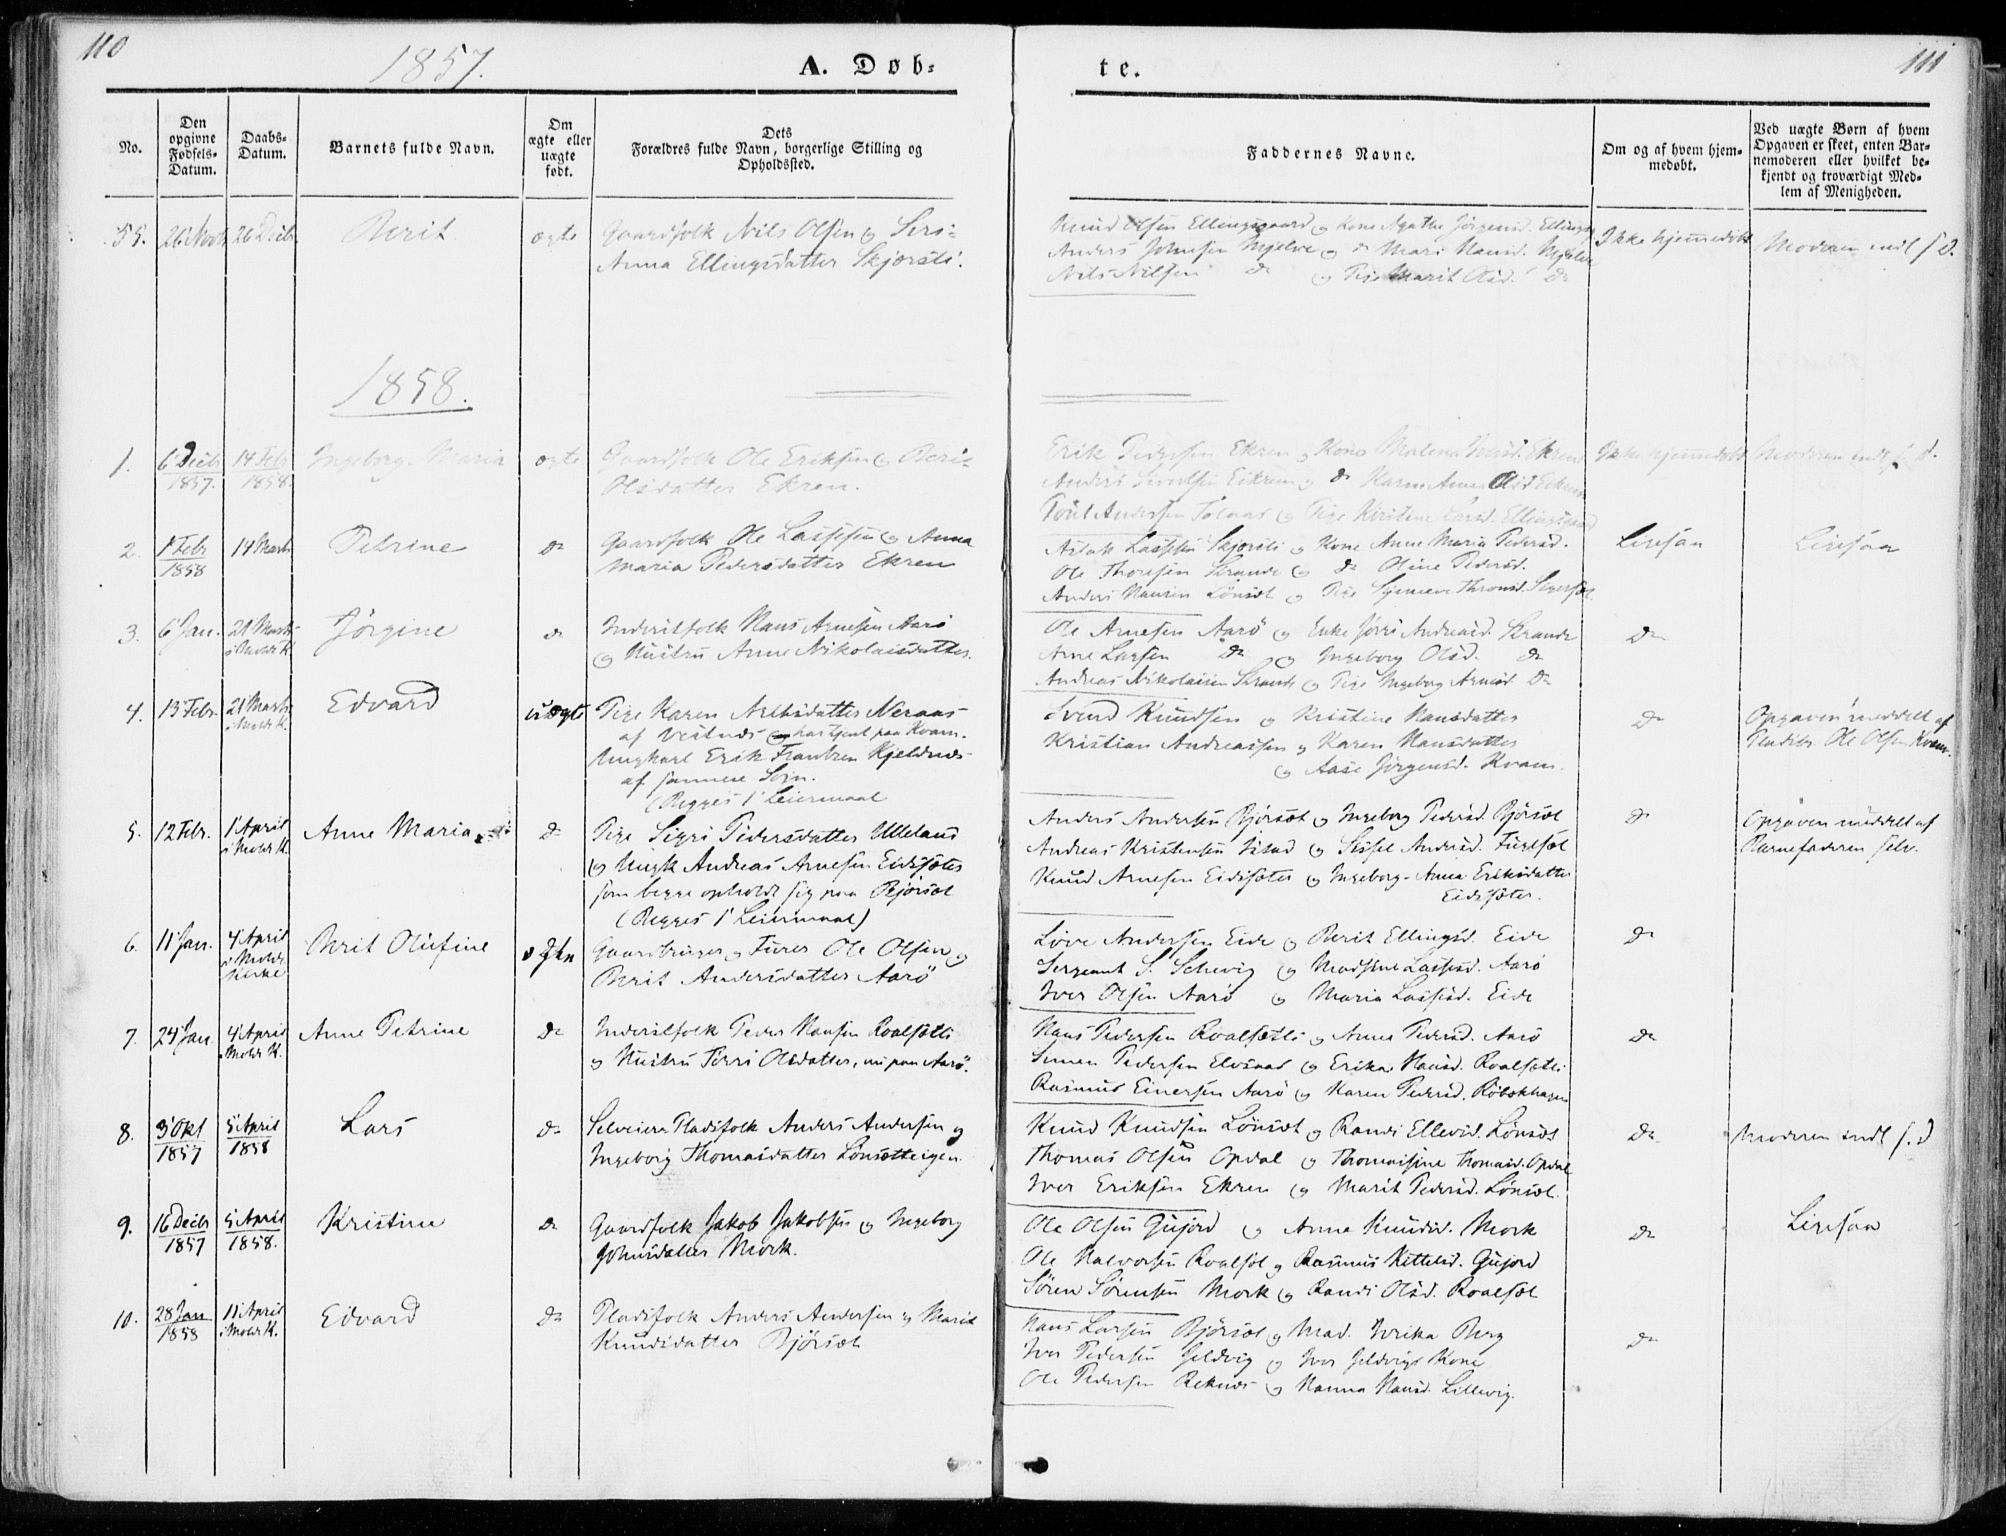 110
1857.
A. Døb-
te.
111
No.
Den opgivne Fødsels-Datum.
Daabs-Datum.
Barnets fulde Navn.
Om ægte eller uægte født.
Dets
Forældres fulde Navn, borgerlige Stilling og
Opholdssted.
Faddernes Navne.
Om og af hvem hjem-
medøbt.
Ved uægte Børn af hvem
Opgaven er skeet, enten Bar-
nemoderen eller hvilket be-
kjendt og troværdigt Med-
lem af Menigheden.
55. 26 Novb 26 Decb Berit ægte Gaardfolk Nils Olsen og Seri-
Anna Ellingsdatter Skjorsli.
Knud Olsen Ellingsgaard og Kone Agathe Jørgensd. Ellingsg
Anders Johnsen Mjelve og do Mari Hansd. Mjelve
Nils Nilsen do og Pige Marit Olsd. do
Ikke hjemmedøbt
Moderen indl f D.
1858.
1. 6 Decb 1857. 14 Feb 1858 Ingeborg Maria ægte Gaardfolk Ole Eriksen og Beri-
Olsdatter Ekren.
Erik Pedersen Ekren og Kone Malena Ekren
Anders Sivertsen Eikrem og do Karen Anna Olsd Eikrem
Poul Andersen Tolaas og Pige Kirstine Larsd. Ellingsgaard
Ikke hjemmedøbt
Moderen indl. f. D.
2. 1 Febr 1858 14 Marts Petrine do Gaardfolk Ole Lassesen og Anna
Maria Pedersdatter Ekren
Aslak Lassesen Skjorsli og Kone Anne Maria Pedersd.
Ole Thoresen Strande og do Oline Pedersd.
Anders Hansen Lønsæt og Pige Thronsd.
Ligesaa
Ligesaa
3. 6 Jan. 21 Marts i Molde K. Jørgine do Inderstfolk Hans Arnesen Aarø
og Hustru Anne Nikolaisdatter.
Ole Arnesen Aarø og Enke Andreasd. Strande
Arne Larsen do og Ingeborg Olsd. do
Andreas Nikolaisen Strande og Pige Ingeborg Arnesd do
do
4. 13 Febr. 21 Marts i Molde K. Edvard uægte Pige Karen Neraas
af Vestnæs har tjent paa Kvam.
Ungkarl Erik Frantzen Kjeldnes
af samme Sogn.
(Begges 1' Leiermaal
Svend Knudsen og Kristine Hansdatter
Kristian Andreassen og Karen Hansdatter
og Aase Jørgensd. Kvam.
do
Opgaven meddelt af
Pladsb. Ole Olsen Kvam.
5. 12 Febr. 1 April i Molde K. Anne Maria do Pige Sigri Pedersdatter Ulleland
og Ungk Andreas Arnesen Eidssæter
som begge opholdt sig paa Bjørsæt
(Begges 1' Leiermaal)
Anders Andersen Bjørsæt og Ingeborg Pedersd. Bjørsæt
Andreas Kristensen Istad og Sissel Andersd. Fuglsæt
Knud Arnesen Eidssæter og Ingeborg-Anna Eriksdatter
Eidssæter.
do
Opgaven meddelt af
Barnefaderen selv.
6. 11 Jan. 4 April i Molde Kirke Berit Olufine ægte Gaardbruger og Furer Ole Olsen og
Berit Andersdatter Aarø
Love Andersen Eide og Berit Ellingsd. Eide
Sergeant S. Schevig og Madsine Lassesd. Aarø
Iver Olsen Aarø og Maria Lassesd. Eide
do
7. 24 Jan 4 April Molde K. Anne Petrine do Inderstfolk Peder Hansen Roalsætli
og Hustru Olsdatter, nu paa Aarø.
Hans Pedersen Roalsætli og Anna Pedersd. Aarø
Simen Pedersen Elvsaas og Erika Hansd. Roalsætli
Rasmus Einersen Aarø og Karen Pedersd. Røbækhagen
do
8. 3 Okt 1857 5 April 1858 Lars do Selveier Pladsfolk Anders Andersen og
Ingeborg Thomasdatter Lønsætteigen.
Knud Knudsen Lønsæt og Randi Ellevsd. Lønsæt
Thomas Olsen Opdal og Thomasine Thomasd. Opdal
Iver Eriksen Ekren og Marit Pedersd. Lønsæt.
do
Moderen indl f. D
9. 16 Decb 1857 5 April 1858. Kristine do Gaardfolk Jakob Jakobsen og Ingeborg
Johnsdatter Mork.
Ole Olsen Gujord og Anne Knudsd. Mork
Ole Halvorsen Roalsæt og Rasmus Kittelsd. Gujord
Søren Sørensen Mork og Randi Olsd. Roalsæt
do
Ligesaa
10. 28 Jan 1858 11 April i Molde K. Edvard do Pladsfolk Anders Andersen og Marit
Knudsdatter Bjørsæt
Hans Larsen Bjørsæt og Mad. Berg
Iver Pedersen Geldvig og Iver Geldvigs Kone
Ole Pedersen Reknæs og Hanna Hansd. Lillevig.
do